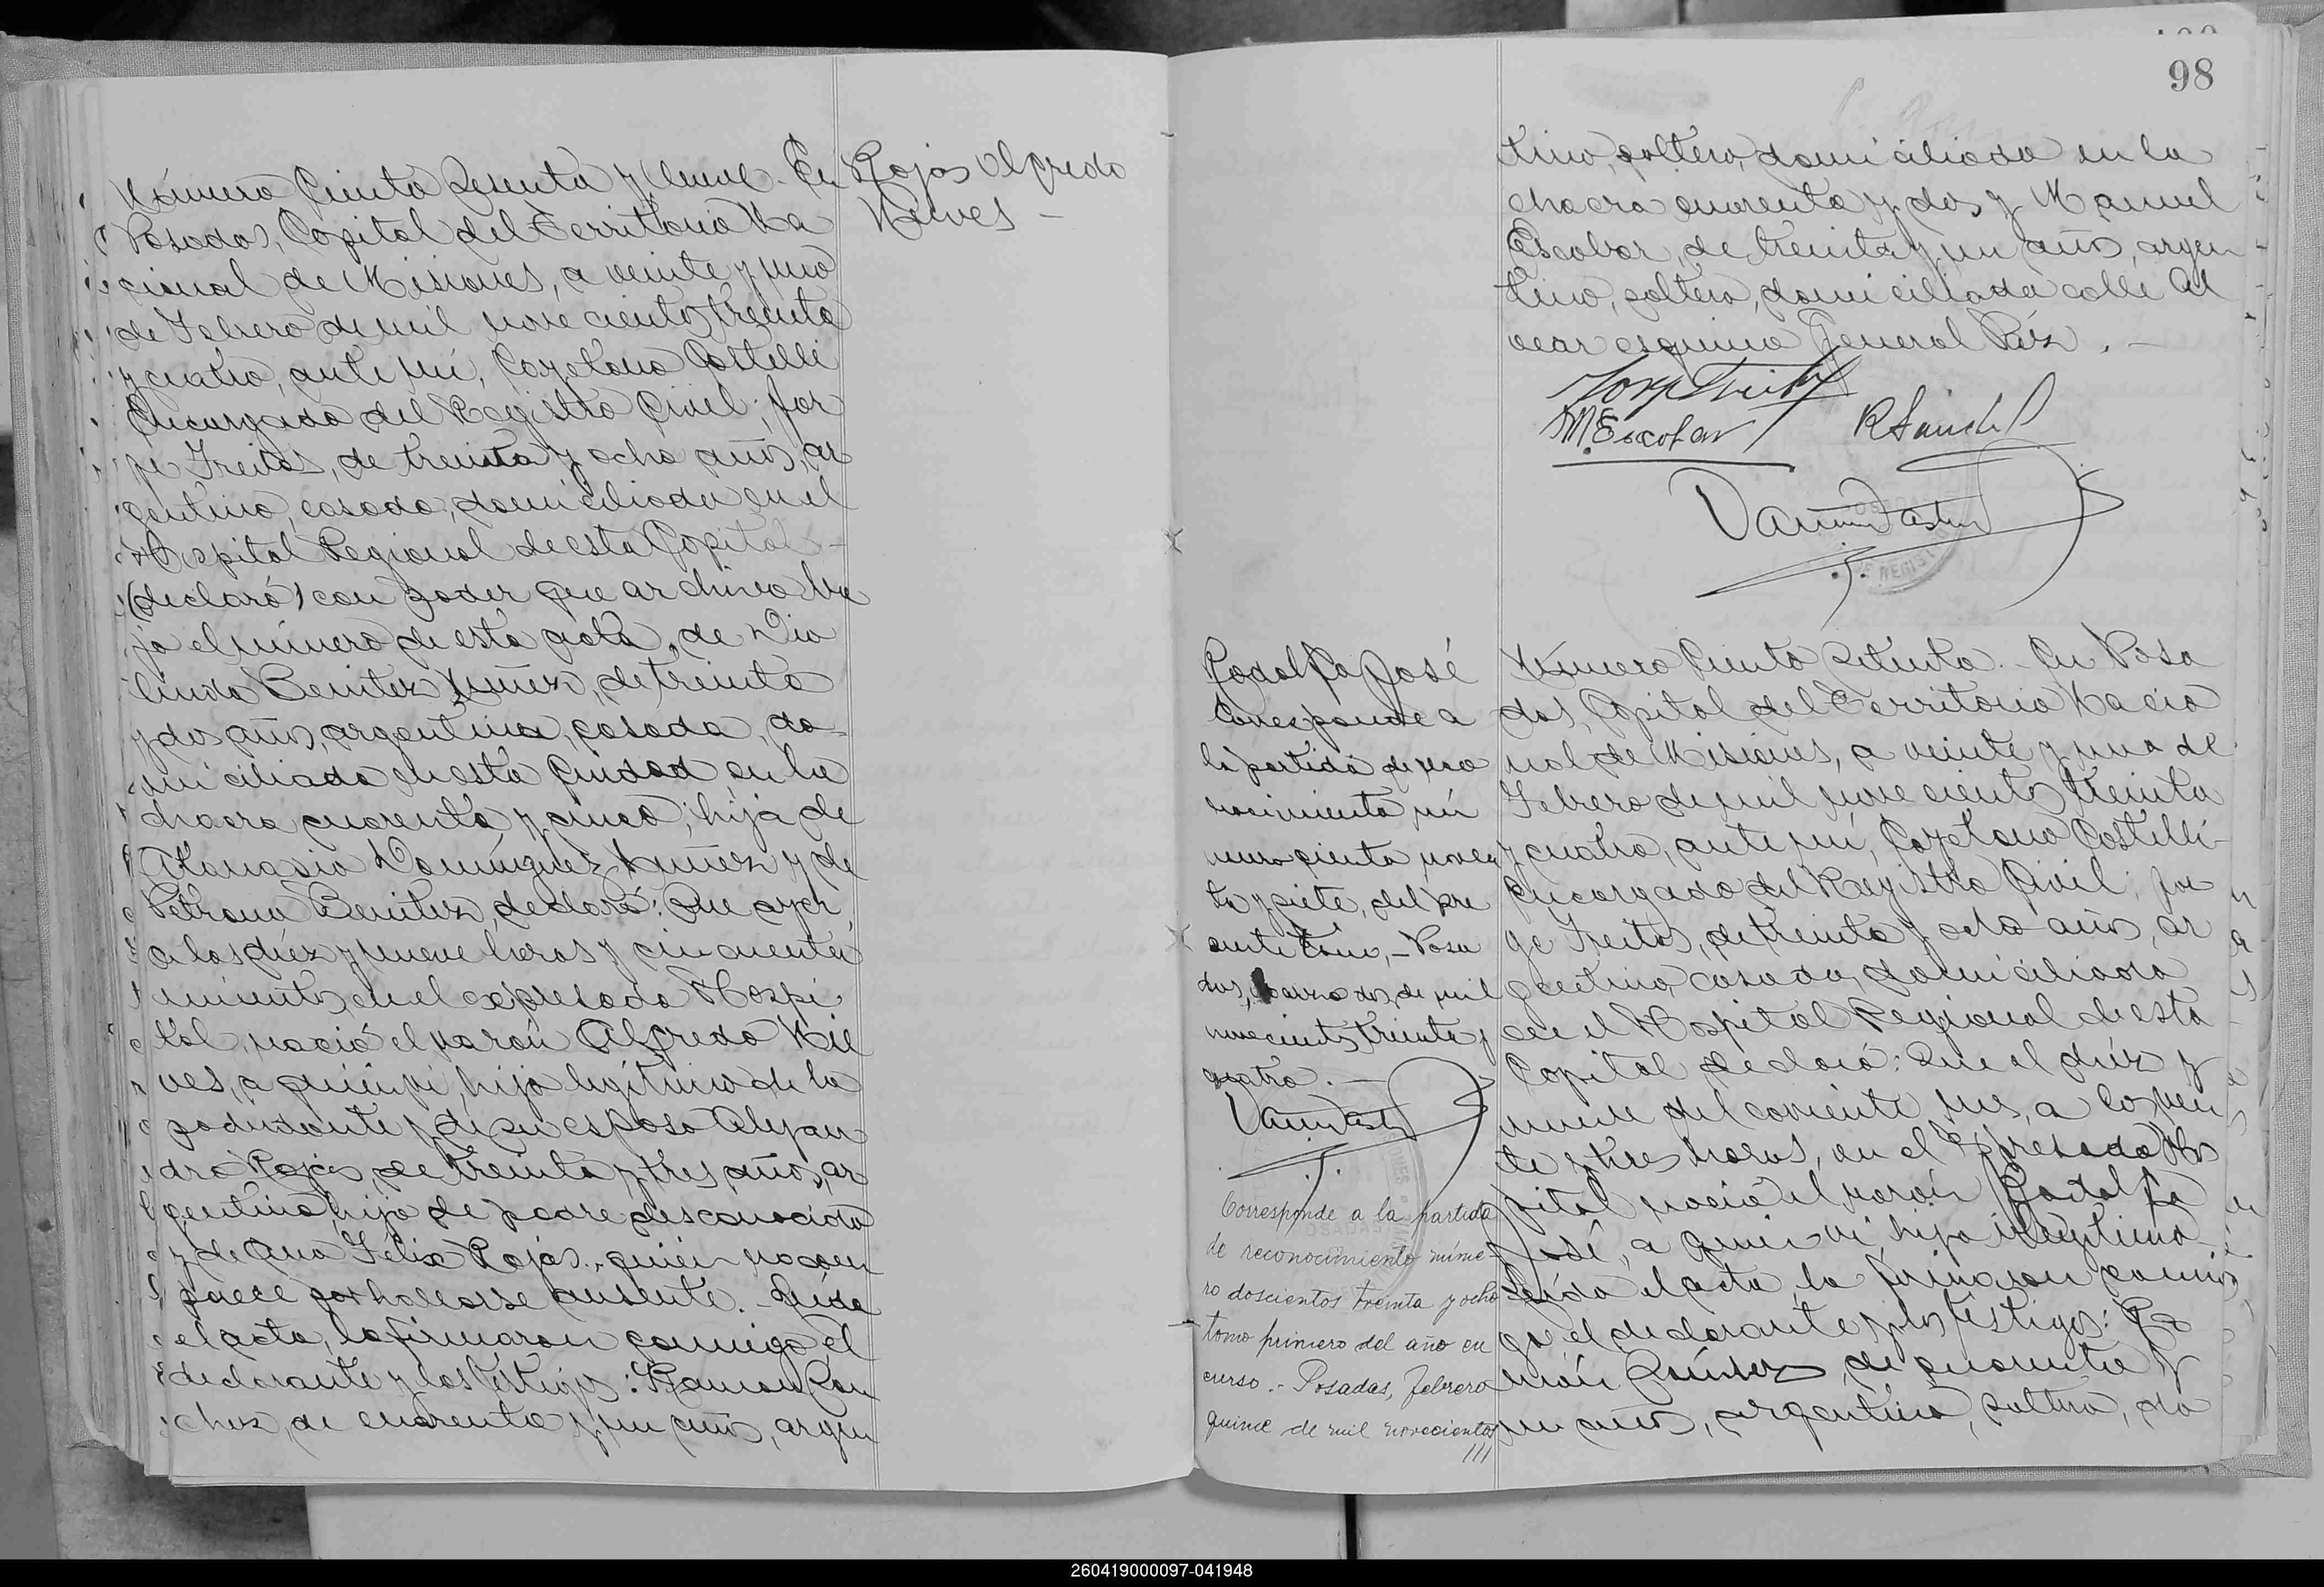 Número Ciento Sesenta y Nueve. En
Posadas, Capital del Territorio Na
cional de Misiones, a veinte y uno
de Febrero de mil novecientos treinta
y cuatro, ante mí, Cayetano Castelli
Encargado del Registro Civil; Jor
ge Freitas, de treinta y ocho años, ar
gentino, casado, domiciliado en el
Hospital Regional de esta Capital
(declaró) con poder que archivo ba
jo el número de esta acta, de Dio
linda Benitez Nuñez, de treinta
y dos años, argentina, casada, do
miciliada en esta Ciudad en la
chacra cuarenta y cinco; hija de
Atanasio Domínguez Nuñez y de
Petrona Benitez, declaró: Que ayer
a las diez y nueve horas y cincuenta
minutos, en el expresado Hospi
tal, nació el varón Alfredo Nie
ves, a quien vi, hijo legítimo de la
poderdante y de su esposo Alejan
dro Rojas, de treinta y tres años, ar
gentino, hijo de padre desconocido
y de Ana Félix Rojas, quien no com
parece por hallarse ausente. Leída
el acta, la firmaron conmigo el
declarante y los testigos: Ramon Sán
chez, de cuarenta y un años, argen
Rojas Alfredo
Nieves -
98
tino, soltero, domiciliado en la
chacra cuarenta y dos y Manuel
Escobar, de treinta y un años, argen
tino, soltero, domiciliado calle Al
vear esquina General Páz. -
Jorge Freitas
MEscobar
RSánchez
Rodolfo José
Corresponde a
la partida de reco
nocimiento nú
mero ciento noven
ta y siete, del pre
sente tomo, - Posa
das, Marzo dos, de mil
novecientos treinta y
cuatro. -
Corresponde a la partida
de reconocimiento núme-
ro doscientos treinta y ocho
tomo primero del año en
curso.- Posadas, febrero
quince de mil novecientos
///
Número Ciento Setenta. - En Posa
das, Capital del Territorio Nacio
nal de Misiones, a veinte y uno de
Febrero de mil novecientos treinta
y cuatro, ante mí, Cayetano Castelli
Encargado del Registro Civil; Jor
ge Freitas, de treinta y ocho años, ar
gentino, casado, domiciliado
en el Hospital Regional de esta
Capital declaró: Que el diez y
nueve del corriente mes, a las vein
te y tres horas, en el expresado Hos
pital nació el varón Rodolfo
José, a quien vi hijo ilegítimo
Leída el acta, la firmaron conmi
go el declarante y los testigos: Ra
món Sánchez, de cuarenta y
un años, argentino, soltero, do
260419000097-041948